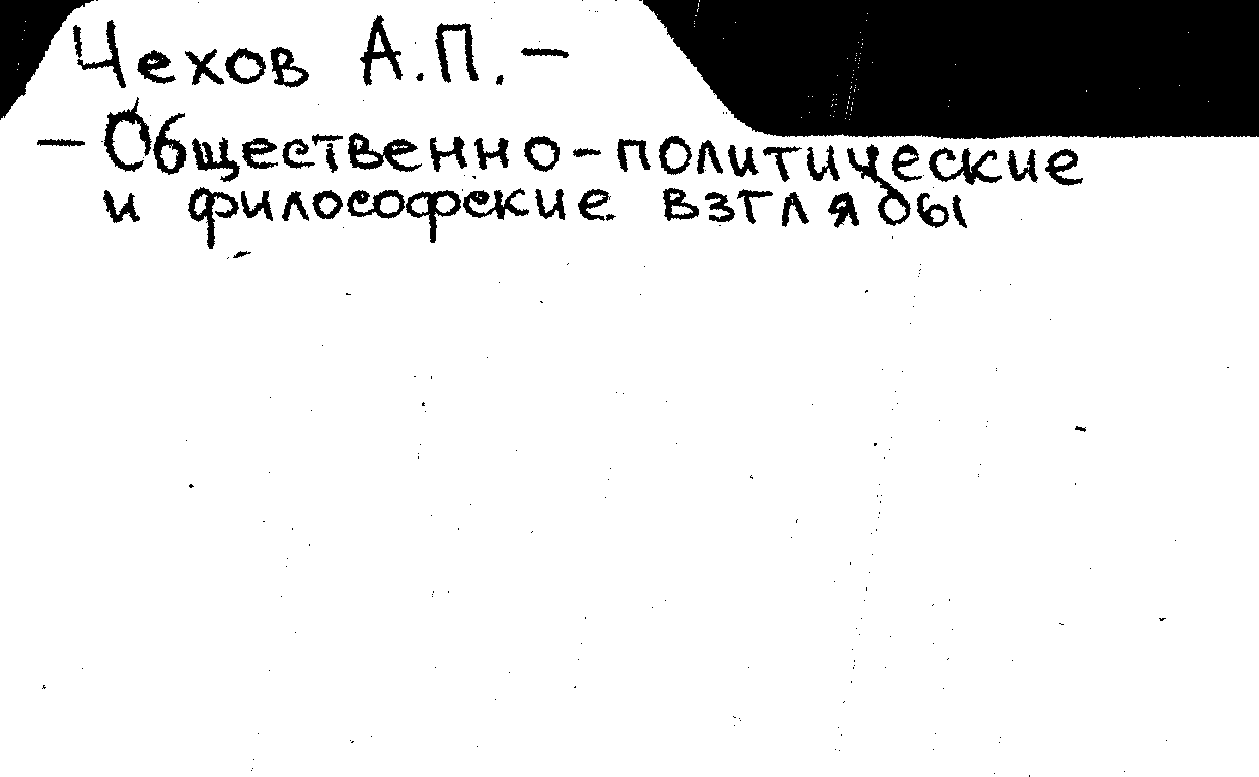 Чехов А.П. –
– Общественно-политические
и философские взгляды